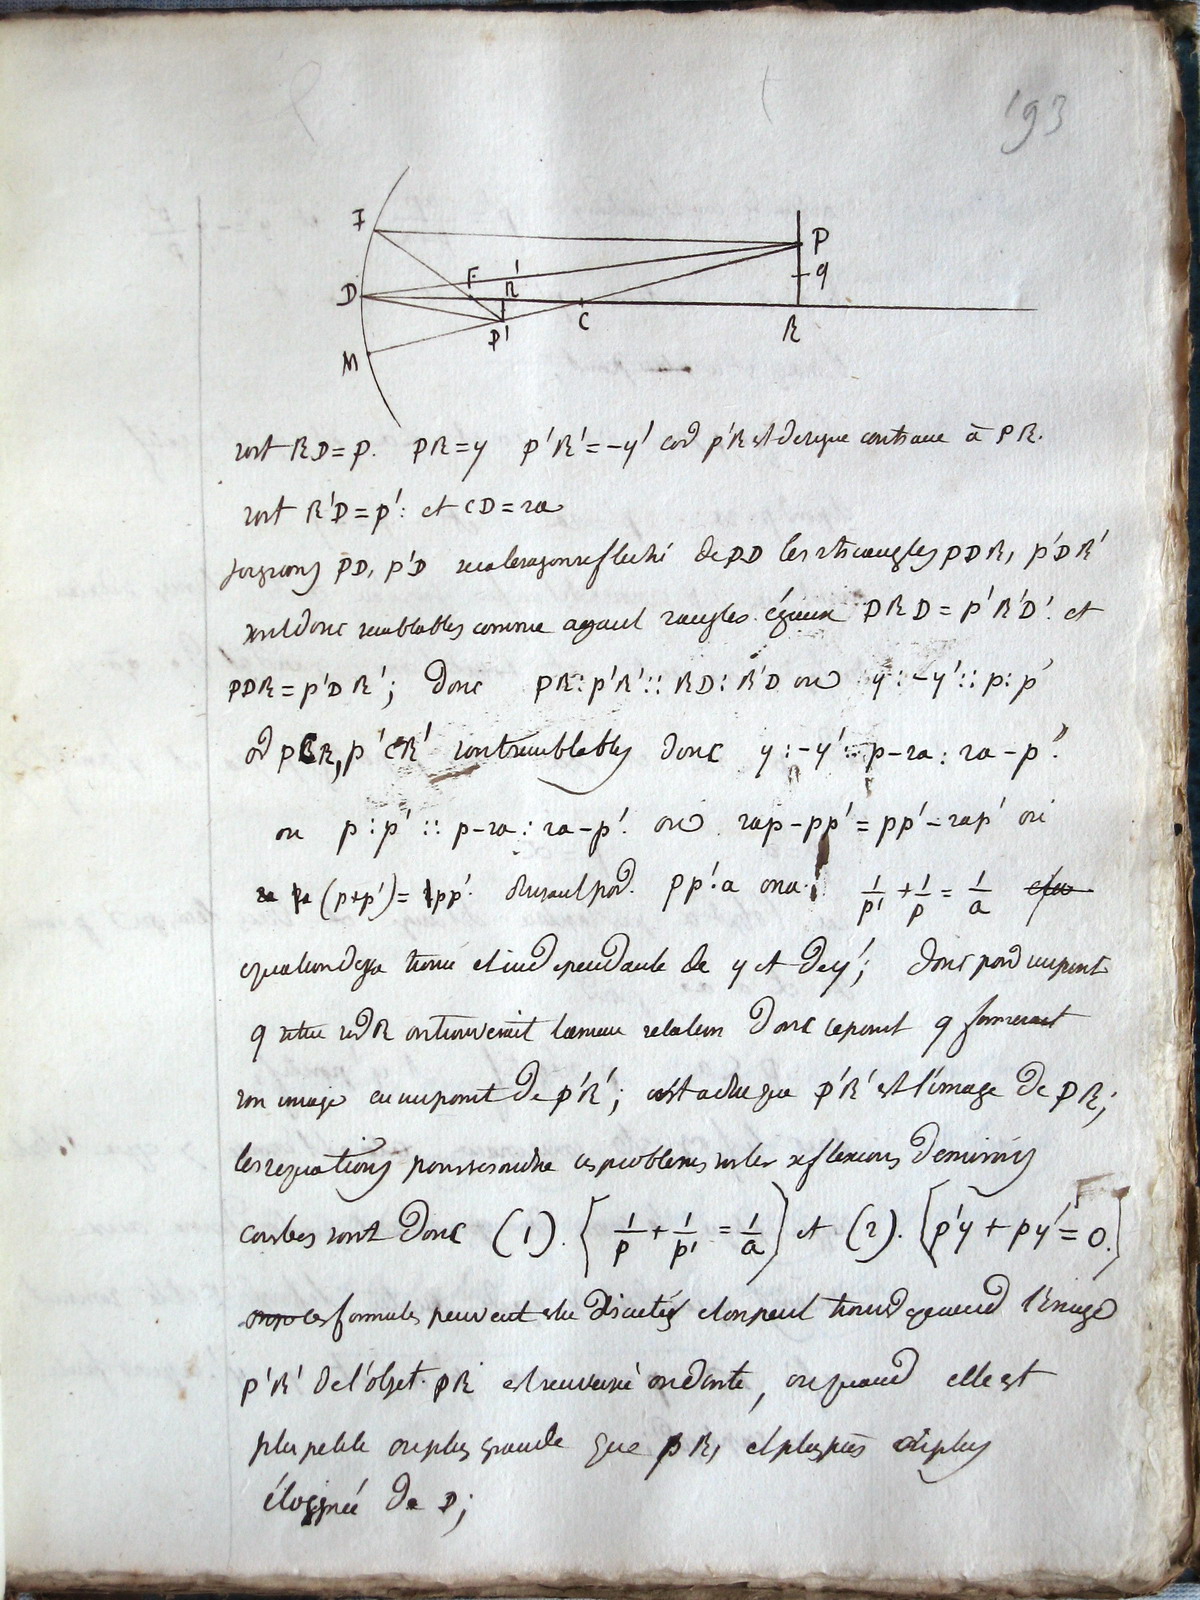 193
I
P
F
R'
q
D
C
R
P'
M
soit RD=p. PR=y p'R'=-y' car p'R est de signe contraire à PR.
soit R'D=p': et CD=2a
joignons PD, p'D sera le rayon reflechi de PD les triangles PDR, p'DR'
sont donc semblables comme ayant 2 angles égaux DRD=p'R'D' et
PDR=p'DR'; donc PR:p'R'::RD:R'D ou y:-y'::p:p'
or PCR, p'CR' sont semblables donc y:-y'::p-2a:2a-p'
ou p:p'::p-2a:2a-p'. ou 2ap-pp'=pp'-2ap' ou
(p+p')= pp'. divisant par pp'a on a. 1/p' + 1/p = 1/a
equation deja trouvé et independante de y et de y'; donc pour un point
q entre P et R on trouverait la meme relation donc ce point q formerait
son image en un point de p'R'; c'est a dire que p'R' est l'image de PR;
les equations pour resoudre les problemes sur les reflexions de miroirs
courbes sont donc (1). {1/p + 1/p' = 1/a} et (2). [p'y + py' = 0.]
ces formules peuvent etre discutés et on peut trouver quand l'image
p'R' de l'objet PR est renversé ou droite, ou quand elle est
plus petite ou plus grande que PR, et plus près ou plus
éloignée de D;